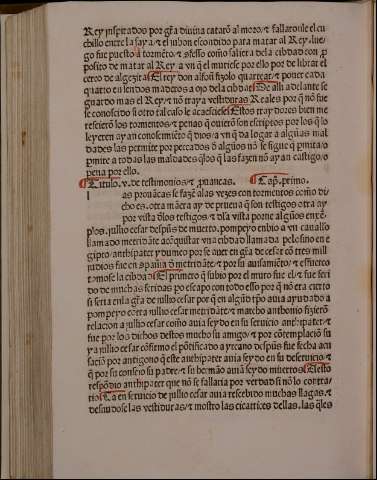 Rey inspirados por gr̃a diuina cataro al moro/ ⁊ fallarole el cu
chillo entre la saya/ ⁊ el jubon escondido para matar al Rey. lue
go fue puesto a tormẽto/ ⁊ ꝯfesso como saliera dela cibdad con ꝓ
posito de matar al Rey a vn q̃l muriesse por ello por de librar el
cerco de algezira El rey don alfonso fizolo quartear/ ⁊ poner cada
quarto en sendos maderos a ojo dela cibdat De alli adelante se
guardo mas el Rey/ ⁊ no traya vestiduras Reales por q̃ no fue
se conoscido si otro tal caso le acaesciesse Estos traydores bien me
rescierõ los tormentos/ ⁊ penas q̃ quierẽ son escriptos por los q̃ lo
leyeren ayan conoscimiẽto q̃ dios a vn q̃ da logar a algũas mal
dades las permite por peccados
pmite a todas las maldades q̃los q̃ las fazen nõ ayan castigo/ o
pena por ello.
Titulo. v. de testimonios/ ⁊ prouanças. Capᵒ. primo.
as prouãças se fazẽ alas vezes con tormentos como di
cho es. otra manera ay de prueua q̃ son testigos otra ay
por vista ᵭlos testigos/ ⁊ ᵭla vista porne algũos enxẽ
plos. julio cesar despues de muerto. pompeyo enbio a vn cauallo
llamado metridate a conquistar vna cibdad llamada pelosino en e
gipto/ antipater/ ydumeo por se auer en gr̃a de cesar cõ tres mill
judios fue en ayuda ᵭ metridate/ ⁊ por su ausamiẽto/ ⁊ esfuerço
tomose la cibdad El primero q̃ subio por el muro fue el/ ⁊ fue feri
do de muchas feridas pᵒ escapo con todo ello por q̃ nõ era cierto
si seria enla gr̃a de julio cesar por q̃ en algũd tp̃o auia ayudado a
pompeyo cõtra julio cesar metridate/ ⁊ marcho anthonio fizierõ
relacion a julio cesar como auia seydo en su seruicio antipater/ ⁊
fue por los dichos destos mucho su amigo/ ⁊ por cõtemplaciõ su
ya julio cesar cõfirmo el põtificado a yrcano despues fue fecha acu
sacion por antigono q̃ este antipater auia seydo en su deseruicio/ ⁊
q̃ por su consejo su padre/ ⁊ su hermano auiã seydo muertos A esto
respõdio antipater que nõ se fallaria por verdad si nõ lo contra
rio Ca en seruicio de julio cesar auia rescebido muchas llagas/ ⁊
desnudose las vestiduras/ ⁊ mostro las cicatrices dellas. las q̃les